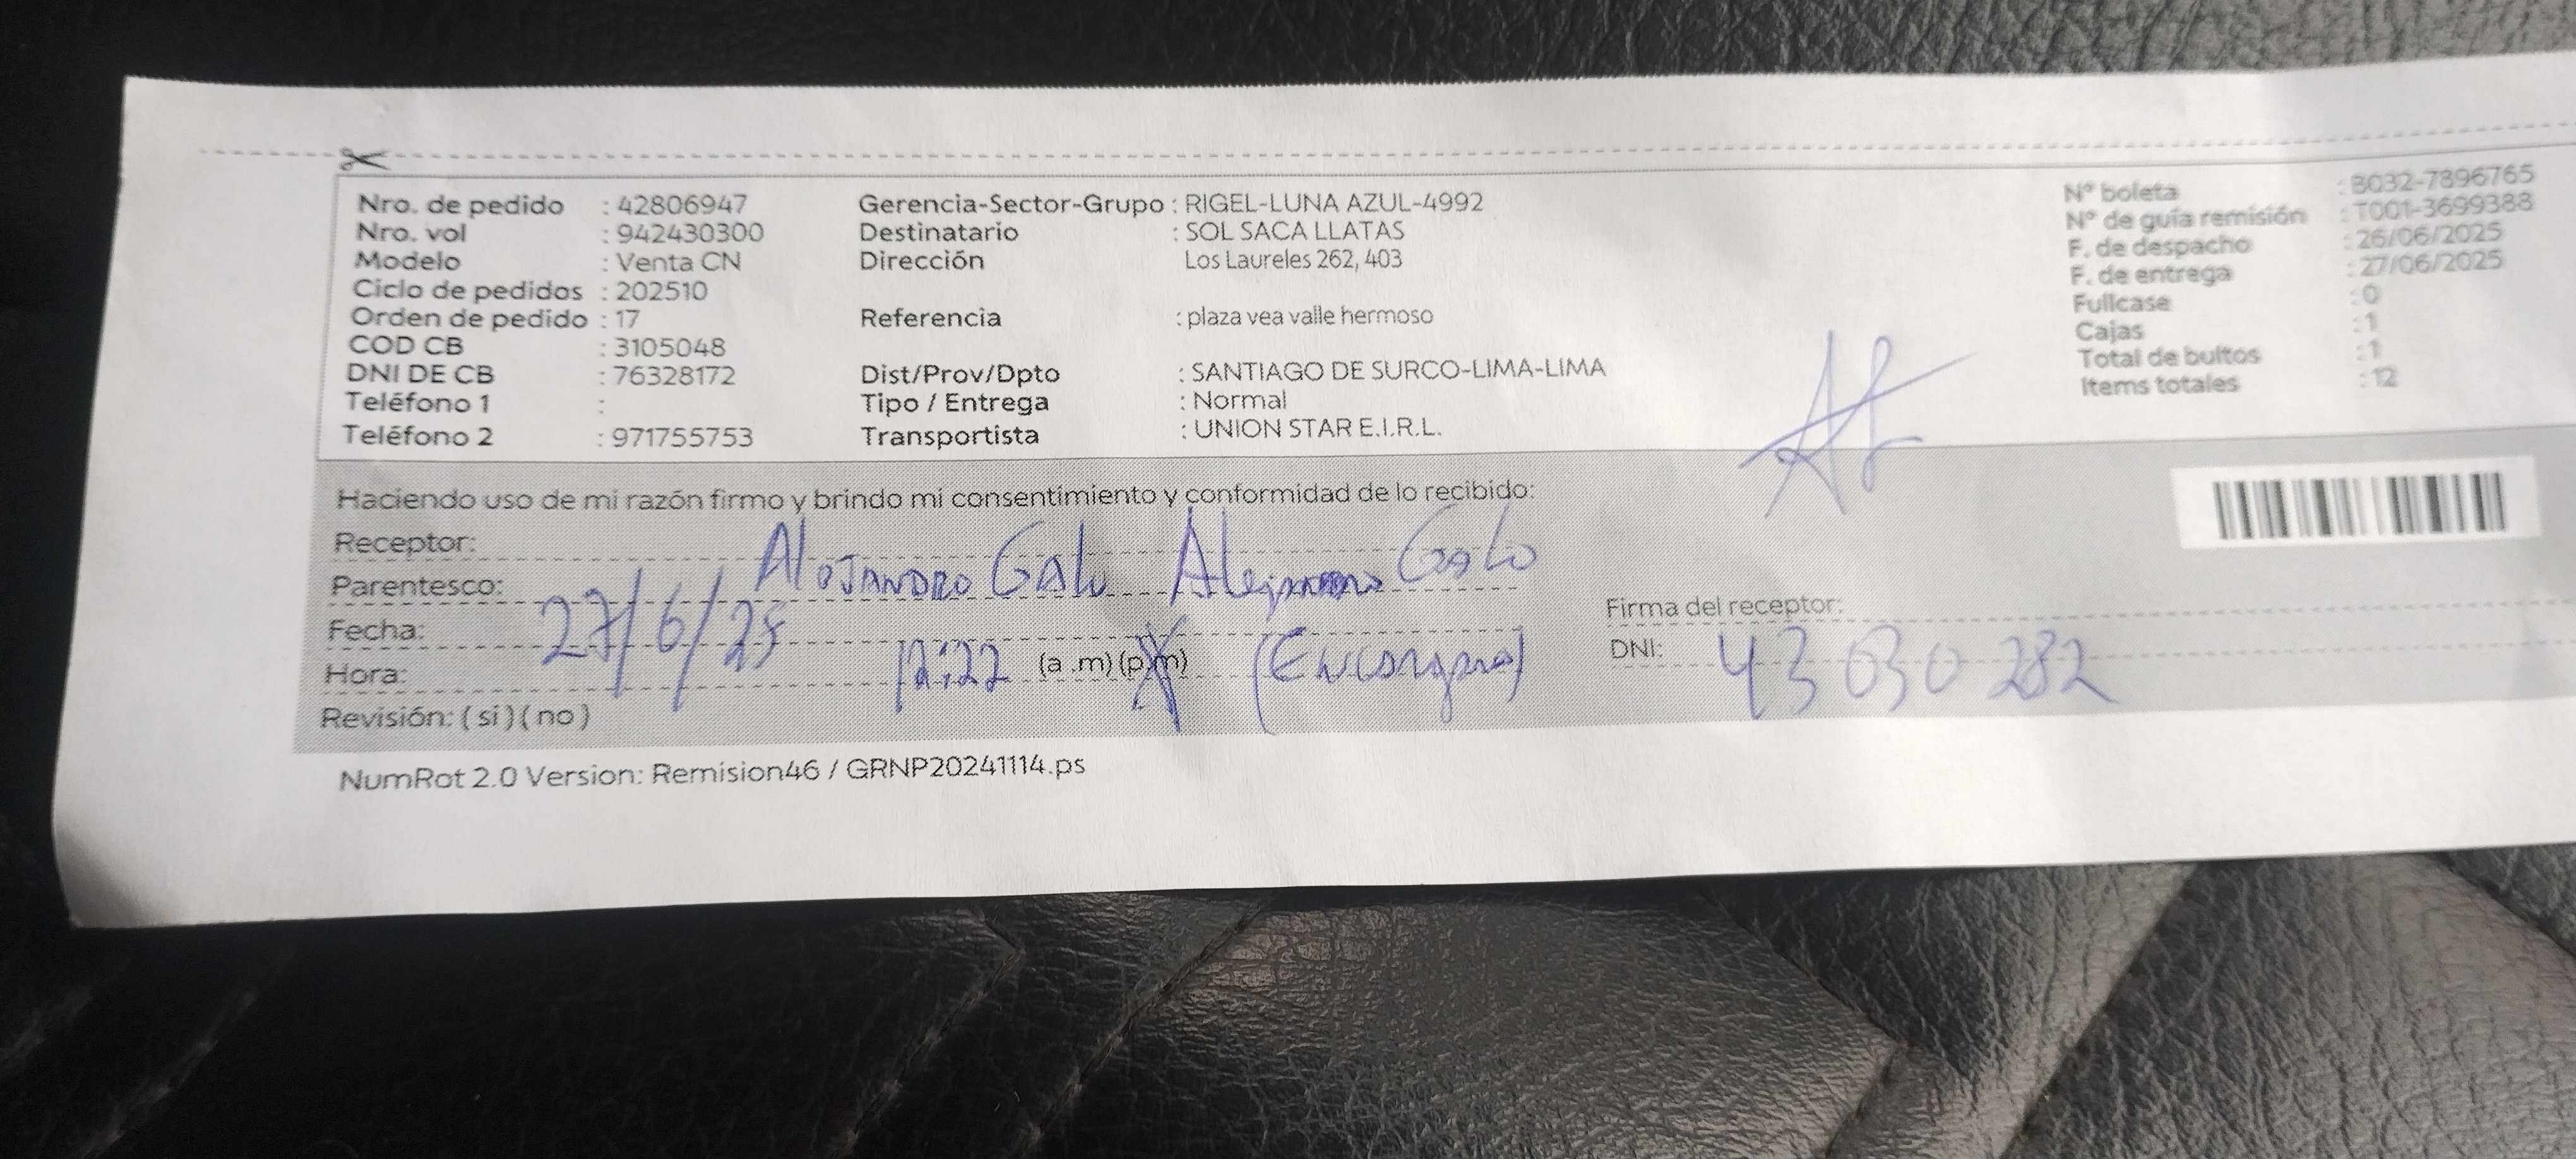 Nro. de pedido : 42806947
Nro. vol : 942430300
Modelo : Venta CN
Ciclo de pedidos : 202510
Orden de pedido : 17
COD CB : 3105048
DNI DE CB : 76328172
Teléfono 1 :
Teléfono 2 : 971755753
Gerencia-Sector-Grupo : RIGEL-LUNA AZUL-4992
Destinatario : SOL SACA LLATAS
Dirección Los Laureles 262, 403
Referencia : plaza vea valle hermoso
Dist/Prov/Dpto : SANTIAGO DE SURCO-LIMA-LIMA
Tipo / Entrega : Normal
Transportista : UNION STAR E.I.R.L.
N° boleta : B032-7896765
N° de guía remisión : T001-3699388
F. de despacho : 26/06/2025
F. de entrega : 27/06/2025
Fullcase : 0
Cajas : 1
Total de bultos : 1
Items totales : 12
Haciendo uso de mi razón firmo y brindo mi consentimiento y conformidad de lo recibido:
Receptor:
Alejandro Alejandro
Parentesco:
Fecha: 27/6/25
Hora: 12:22 (a .m) (p.m)
Revisión: ( si ) ( no )
Firma del receptor:
DNI: 43030282
NumRot 2.0 Version: Remision46 / GRNP20241114.ps